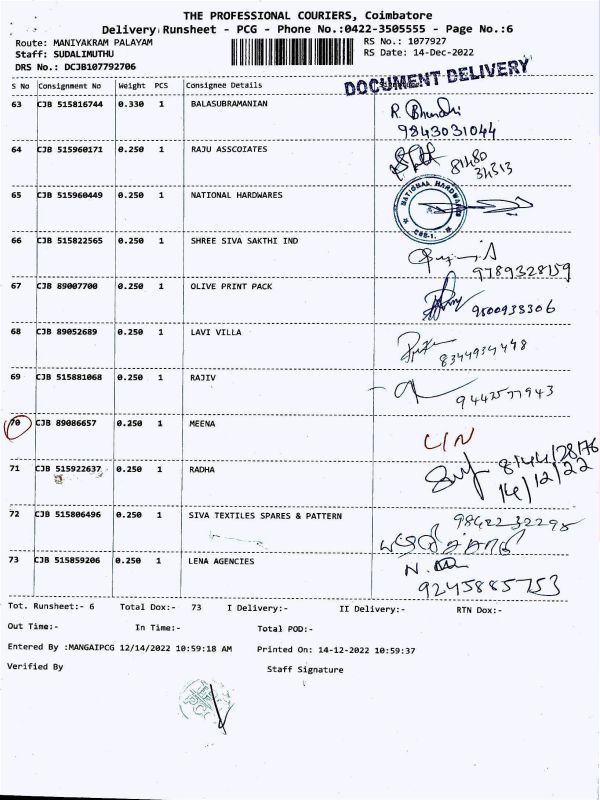 THE PROFESSIONAL COURIERS, Coimbatore
Delivery Runsheet - PCG - Phone No.:0422-3505555 - Page No.:6
Route: MANIYAKRAM PALAYAM RS No.: 1077927
Staff: SUDALIMUTHU RS Date: 14-Dec-2022
DRS No.: DCJB107792706
DOCUMENT DELIVERY
S No Consignment No Weight PCS Consignee Details
63 CJB 515816744 0.330 1 BALASUBRAMANIAN
9843031044
64 CJB 515960171 0.250 1 RAJU ASSCOIATES
81480
34313
65 CJB 515960449 0.250 1 NATIONAL HARDWARES
NATIONAL HARDWARES
66 CJB 515822565 0.250 1 SHREE SIVA SAKTHI IND
9789328159
67 CJB 89007700 0.250 1 OLIVE PRINT PACK
9500938306
68 CJB 89052689 0.250 1 LAVI VILLA
8344934448
69 CJB 515881068 0.250 1 RAJIV
9442577943
70 CJB 89086657 0.250 1 MEENA
L/N
71 CJB 515922637 0.250 1 RADHA
8144/28/76
14/12/22
72 CJB 515806496 0.250 1 SIVA TEXTILES SPARES & PATTERN
9842232298
73 CJB 515859206 0.250 1 LENA AGENCIES
9245885753
Tot. Runsheet:- 6 Total Dox:- 73 I Delivery:- II Delivery:- RTN Dox:-
Out Time:- In Time:- Total POD:-
Entered By :MANGAIPCG 12/14/2022 10:59:18 AM Printed On: 14-12-2022 10:59:37
Verified By Staff Signature